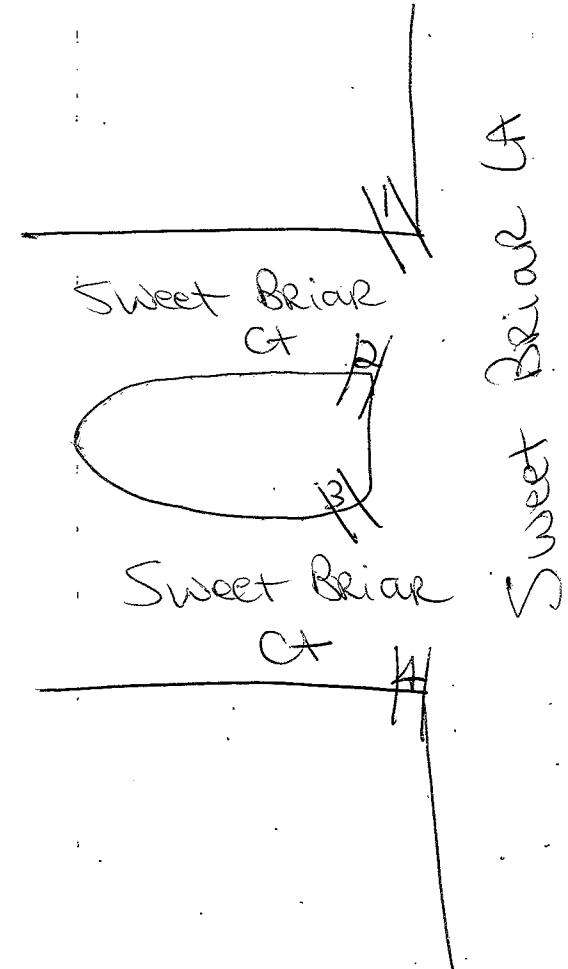 1
Sweet Briar
Ct
2
3
Sweet Briar
Ct
4
Sweet Briar LA